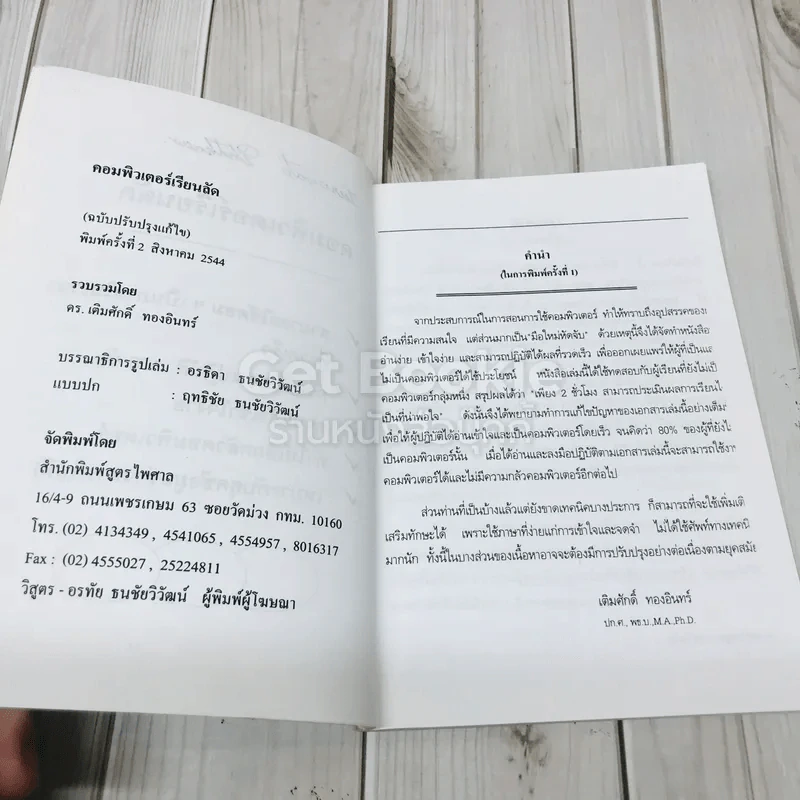 คอมพิวเตอร์เรียนลัด
(ฉบับปรับปรุงแก้ไข)
พิมพ์ครั้งที่ 2 สิงหาคม 2544
รวบรวมโดย
ดร. เติมศักดิ์ ทองอินทร์
บรรณาธิการรูปเล่ม : อรธิดา ธนชัยวิวัฒน์
แบบปก : ฤทธิชัย ธนชัยวิวัฒน์
จัดพิมพ์โดย
สำนักพิมพ์สูตรไพศาล
16/4-9 ถนนเพชรเกษม 63 ซอยวัดม่วง กทม. 10160
โทร. (02) 4134349 , 4541065 , 4554957 , 8016317
Fax : (02) 4555027 , 25224811
วิสูตร - อรทัย ธนชัยวิวัฒน์ ผู้พิมพ์ผู้โฆษณา
คำนำ
(ในการพิมพ์ครั้งที่ 1)
จากประสบการณ์ในการสอนการใช้คอมพิวเตอร์ ทำให้ทราบถึงอุปสรรคของ
เรียนที่มีความสนใจ แต่ส่วนมากเป็น"มือใหม่หัดจับ" ด้วยเหตุนี้จึงได้จัดทำหนังสือ
อ่านง่าย เข้าใจง่าย และสามารถปฏิบัติได้ผลที่รวดเร็ว เพื่อออกเผยแพร่ให้ผู้ที่เป็นและ
ไม่เป็นคอมพิวเตอร์ได้ใช้ประโยชน์ หนังสือเล่มนี้ได้ใช้ทดสอบกับผู้เรียนที่ยังไม่เป็
คอมพิวเตอร์กลุ่มหนึ่ง สรุปผลได้ว่า "เพียง 2 ชั่วโมง สามารถประเมินผลการเรียนไ
เป็นที่น่าพอใจ" ดังนั้นจึงได้พยายามทำการแก้ไขปัญหาของเอกสารเล่มนี้อย่างเต็ม
เพื่อให้ผู้ปฏิบัติได้อ่านเข้าใจและเป็นคอมพิวเตอร์โดยเร็ว จนคิดว่า 80% ของผู้ที่ยังไ
เป็นคอมพิวเตอร์นั้น เมื่อได้อ่านและลงมือปฏิบัติตามเอกสารเล่มนี้จะสามารถใช้งา
คอมพิวเตอร์ได้และไม่มีความกลัวคอมพิวเตอร์อีกต่อไป
ส่วนท่านที่เป็นบ้างแล้วแต่ยังขาดเทคนิคบางประการ ก็สามารถที่จะใช้เพิ่มเติ
เสริมทักษะได้ เพราะใช้ภาษาที่ง่ายแก่การเข้าใจและจดจำ ไม่ได้ใช้ศัพท์ทางเทคนิ
มากนัก ทั้งนี้ในบางส่วนของเนื้อหาอาจจะต้องมีการปรับปรุงอย่างต่อเนื่องตามยุคสมัย
เติมศักดิ์ ทองอินทร์
ปก.ศ., พธ.บ.,M.A.,Ph.D.